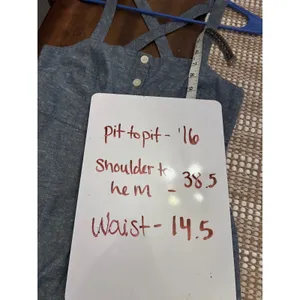 pit to pit - '16
Shoulder to
hem - 38.5
Waist - 14.5